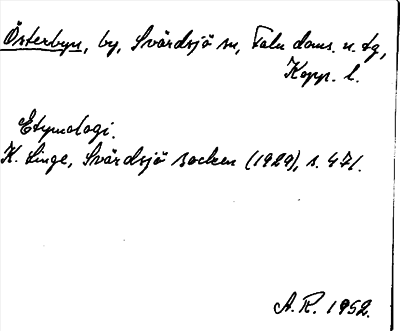 Österbyn, by, Svärdsjö sn, Falu doms. o. tg,
Kopp. l.
Etymologi.
K. Linge, Svärdsjö socken (1929), s. 471.
A. R. 1952.